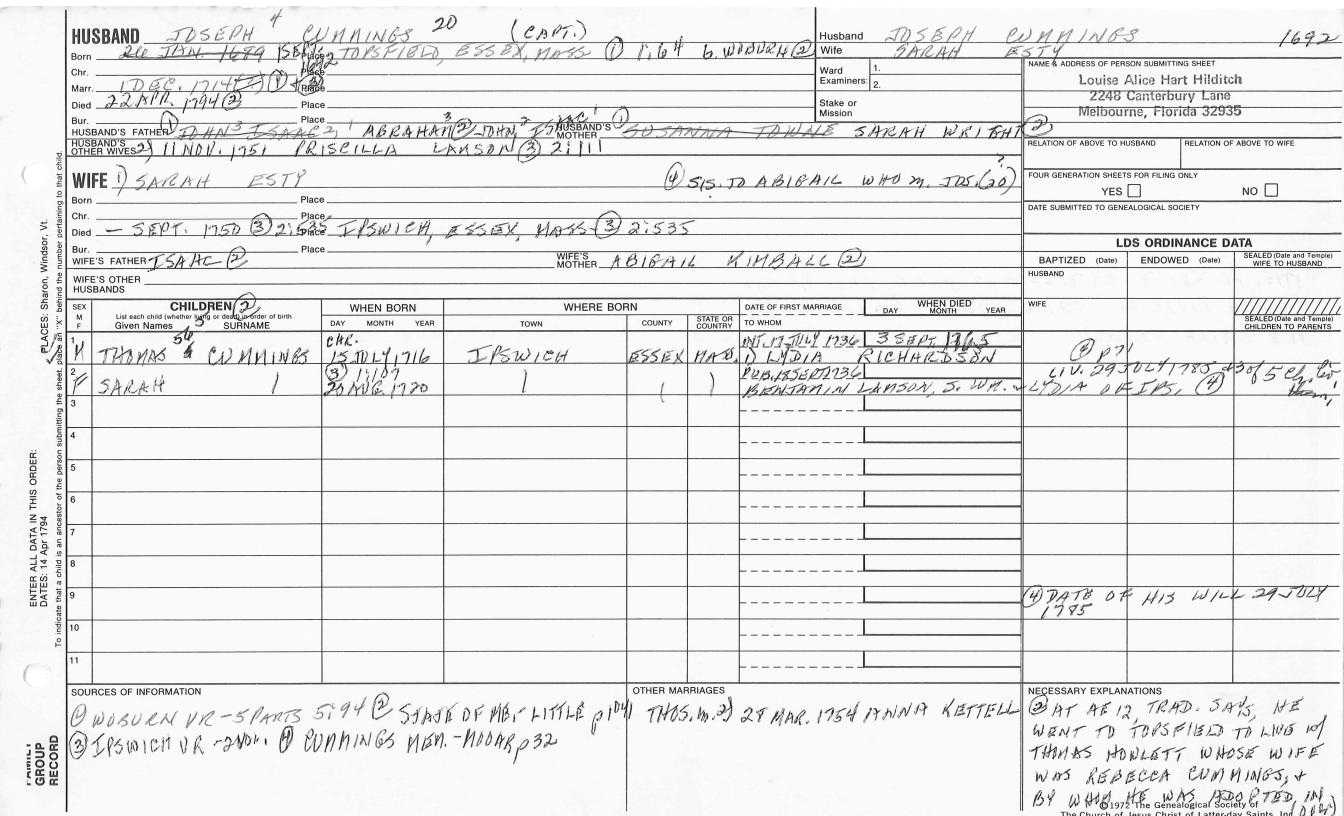 HUSBAND JOSEPH 4 CUMMINGS 20 (CAPT.)
Born 26 JAN. 1689 1 SEPT. 1692 Place TOPSFIELD, ESSEX, MASS ① 1:64 b. WOBURN ②
Chr. Place
Marr. 1 DEC. 1714 ② ① + ③ Place
Died 22 APR. 1794 ② Place
Bur. Place
HUSBAND'S FATHER ① JOHN 3 ISAAC 2, 1 ABRAHAM 3 ② JOHN, 2 ISAAC 1 HUSBAND'S MOTHER ① SUSANNA TOWNE SARAH WRIGHT ②
HUSBAND'S OTHER WIVES 2) 11 NOV. 1751 PRISCILLA LAMSON ③ 2:111
Husband JOSEPH CUMMINGS 1692
Wife SARAH ESTY
Ward Examiners: 1. 2.
Stake or Mission
NAME & ADDRESS OF PERSON SUBMITTING SHEET
Louise Alice Hart Hilditch
2248 Canterbury Lane
Melbourne, Florida 32935
RELATION OF ABOVE TO HUSBAND RELATION OF ABOVE TO WIFE
FOUR GENERATION SHEETS FOR FILING ONLY
YES NO
DATE SUBMITTED TO GENEALOGICAL SOCIETY
WIFE 1) SARAH ESTY ④ SIS. TO ABIGAIL WHO m. JOS. (20) ?
Born Place
Chr. Place
Died — SEPT. 1750 ③ 2:535 Place IPSWICH, ESSEX, MASS ③ 2:535
Bur. Place
WIFE'S FATHER ISAAC ② WIFE'S MOTHER ABIGAIL KIMBALL ②
WIFE'S OTHER HUSBANDS
LDS ORDINANCE DATA
BAPTIZED (Date) ENDOWED (Date) SEALED (Date and Temple) WIFE TO HUSBAND
HUSBAND
WIFE
SEALED (Date and Temple) CHILDREN TO PARENTS
SEX M F CHILDREN ② WHEN BORN WHERE BORN DATE OF FIRST MARRIAGE WHEN DIED
List each child (whether living or dead) in order of birth
Given Names 5 SURNAME DAY MONTH YEAR TOWN COUNTY STATE OR COUNTRY TO WHOM DAY MONTH YEAR
1 M THOMAS 56 CUMMINGS CHR. 15 JULY 1716 IPSWICH ESSEX MASS. INT. 17 JULY 1736 3 SEPT. 1765
1) LYDIA RICHARDSON
2 F SARAH ③ 1:107 20 AUG. 1720 PUB. 18 SEPT 1736
BENJAMIN LAMSON, S. WM. + LYDIA OF IPS. ④
p71
LIV. 29 JULY 1785
3
4
5
6
7
8
9
10
11
④ DATE OF HIS WILL 29 JULY
1785
SOURCES OF INFORMATION
① WOBURN VR - 5 PARTS 5:94 ② STATE OF ME. - LITTLE p1041
③ IPSWICH VR - 2 VOL. ④ CUMMINGS MEM. - MOOAR p32
OTHER MARRIAGES
THOS. m. 2) 28 MAR. 1754 ANNA KETTELL
NECESSARY EXPLANATIONS
② AT AE 12, TRAD. SAYS, HE
WENT TO TOPSFIELD TO LIVE w/
THOMAS HOWLETT WHOSE WIFE
WAS REBECCA CUMMINGS, +
BY WHOM HE WAS ADOPTED IN
©1972 The Genealogical Society of
The Church of Jesus Christ of Latter-day Saints, Inc
ENTER ALL DATA IN THIS ORDER:
DATES: 14 Apr 1794
PLACES: Sharon, Windsor, Vt.
To indicate that a child is an ancestor of the person submitting the sheet, place an "X" behind the number pertaining to that child.
FAMILY
GROUP
RECORD